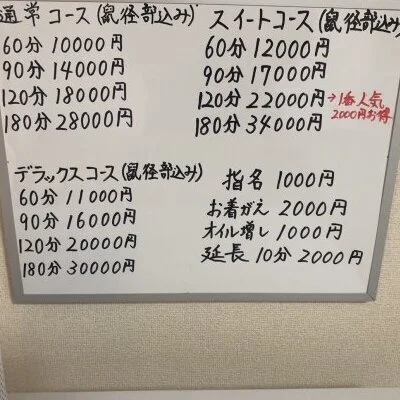 通常コース(鼠径部込み)
60分 10000円
90分 14000円
120分 18000円
180分 28000円
スイートコース(鼠径部込み)
60分 12000円
90分 17000円
120分 22000円 →1番人気
2000円お得
180分 34000円
デラックスコース(鼠径部込み)
60分 11000円
90分 16000円
120分 20000円
180分 30000円
指名 1000円
お着がえ 2000円
オイル増し 1000円
延長 10分 2000円